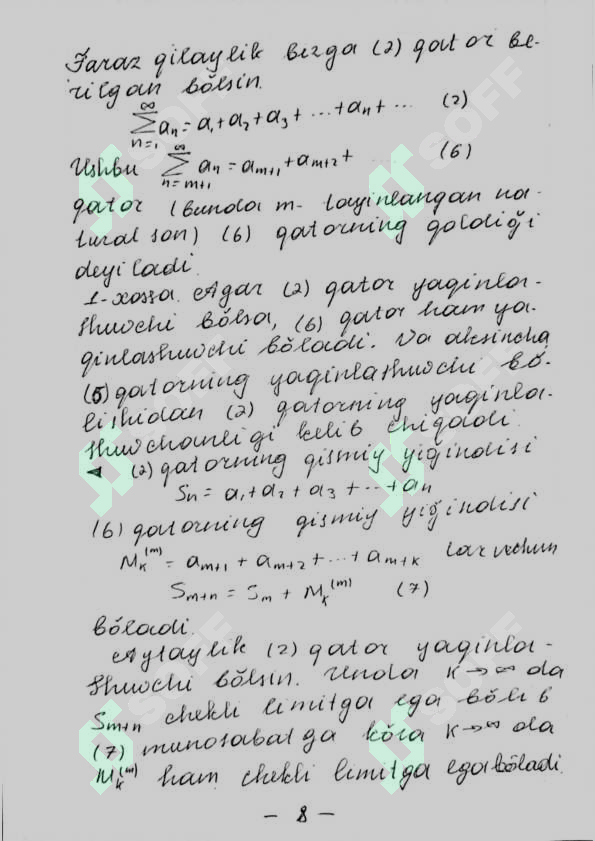 Faraz qilaylik bizga (2) qator be-
rilgan bŏlsin.
∞ ∑ n=1 aₙ = a₁ + a₂ + a₃ + ... + aₙ + ... (2)
Ushbu ∞ ∑ n=m+1 aₙ = aₘ₊₁ + aₘ₊₂ + ... (6)
qator (bunda m- tayinlangan na-
tural son) (6) qatorning qoldiği
deyiladi.
1-xossa. Agar (2) qator yaqinla-
shuvchi bŏlsa, (6) qator ham ya-
qinlashuvchi bŏladi. Va aksincha
(6) qatorning yaqinlashuvchi bŏ-
lishidan (2) qatorning yaqinla-
shuvchanligi kelib chiqadi.
◄ (2) qatorning qismiy yiğindisi
Sₙ = a₁ + a₂ + a₃ + ... + aₙ
(6) qatorning qismiy yiğindisi
Mₖ⁽ᵐ⁾ = aₘ₊₁ + aₘ₊₂ + ... + aₘ₊ₖ lar uchun
Sₘ₊ₙ = Sₘ + Mₖ⁽ᵐ⁾ (7)
bŏladi.
Aytaylik (2) qator yaqinla-
shuvchi bŏlsin. Unda k→∞ da
Sₘ₊ₙ chekli limitga ega bŏlib
(7) munosabatga kŏra k→∞ da
Mₖ⁽ᵐ⁾ ham chekli limitga ega bŏladi.
- 8 -
SOFF
SOFF
SOFF
SOFF
SOFF
SOFF